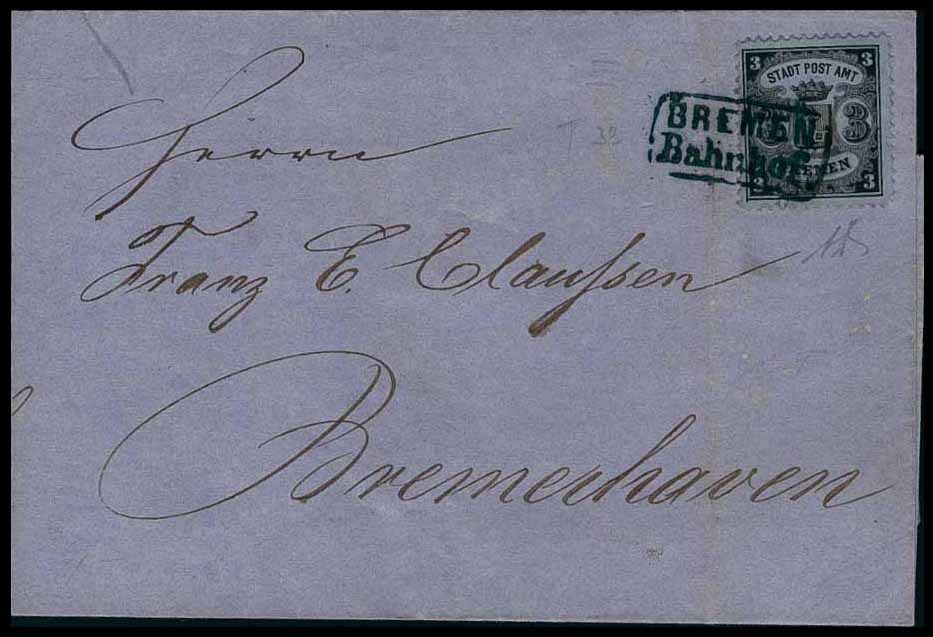 3 3
STADT POST AMT
3
BREMEN
Bahnhof
3 3
Herrn
Franz E. Claußen
Bremerhaven